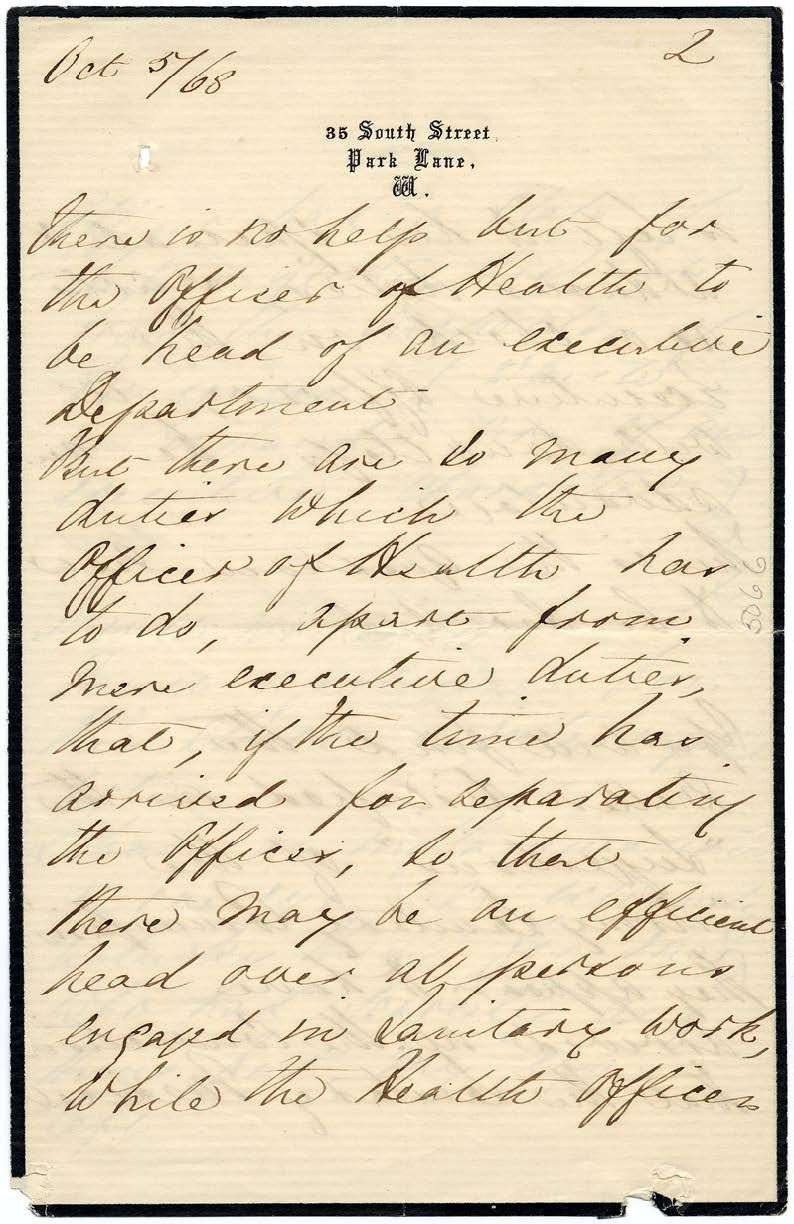 Oct 5/68
2
35 South Street
Park Lane,
W.
there is no help but for
the Officer of Health to
be head of an executive
Department
But there are so many
duties which the
Officer of Health has
to do, apart from
mere executive duties,
that, if the time has
arrived for separating
the Offices, so that
there may be an efficient
head over all persons
engaged in Sanitary work,
while the Health Officer
5066